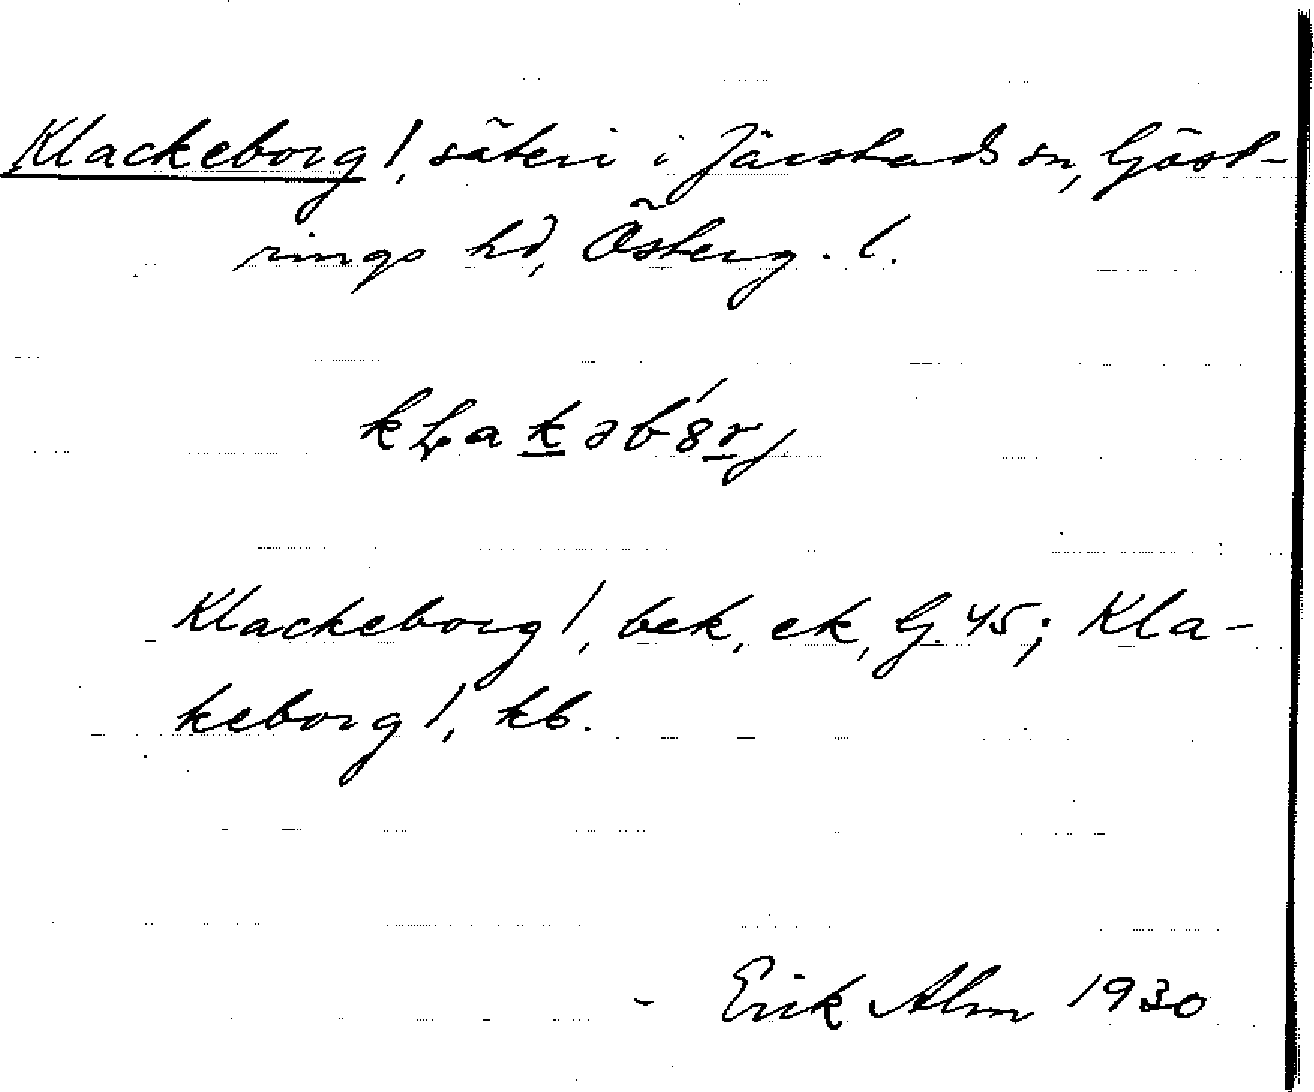 Klackeborg!, säteri i Järstads sn, Göst-
rings hd, Österg. l.
kⱡakəb'8rj
Klackeborg!, bek, ek, G. 45; Kla-
keborg!, kb.
Erik Alm 1930